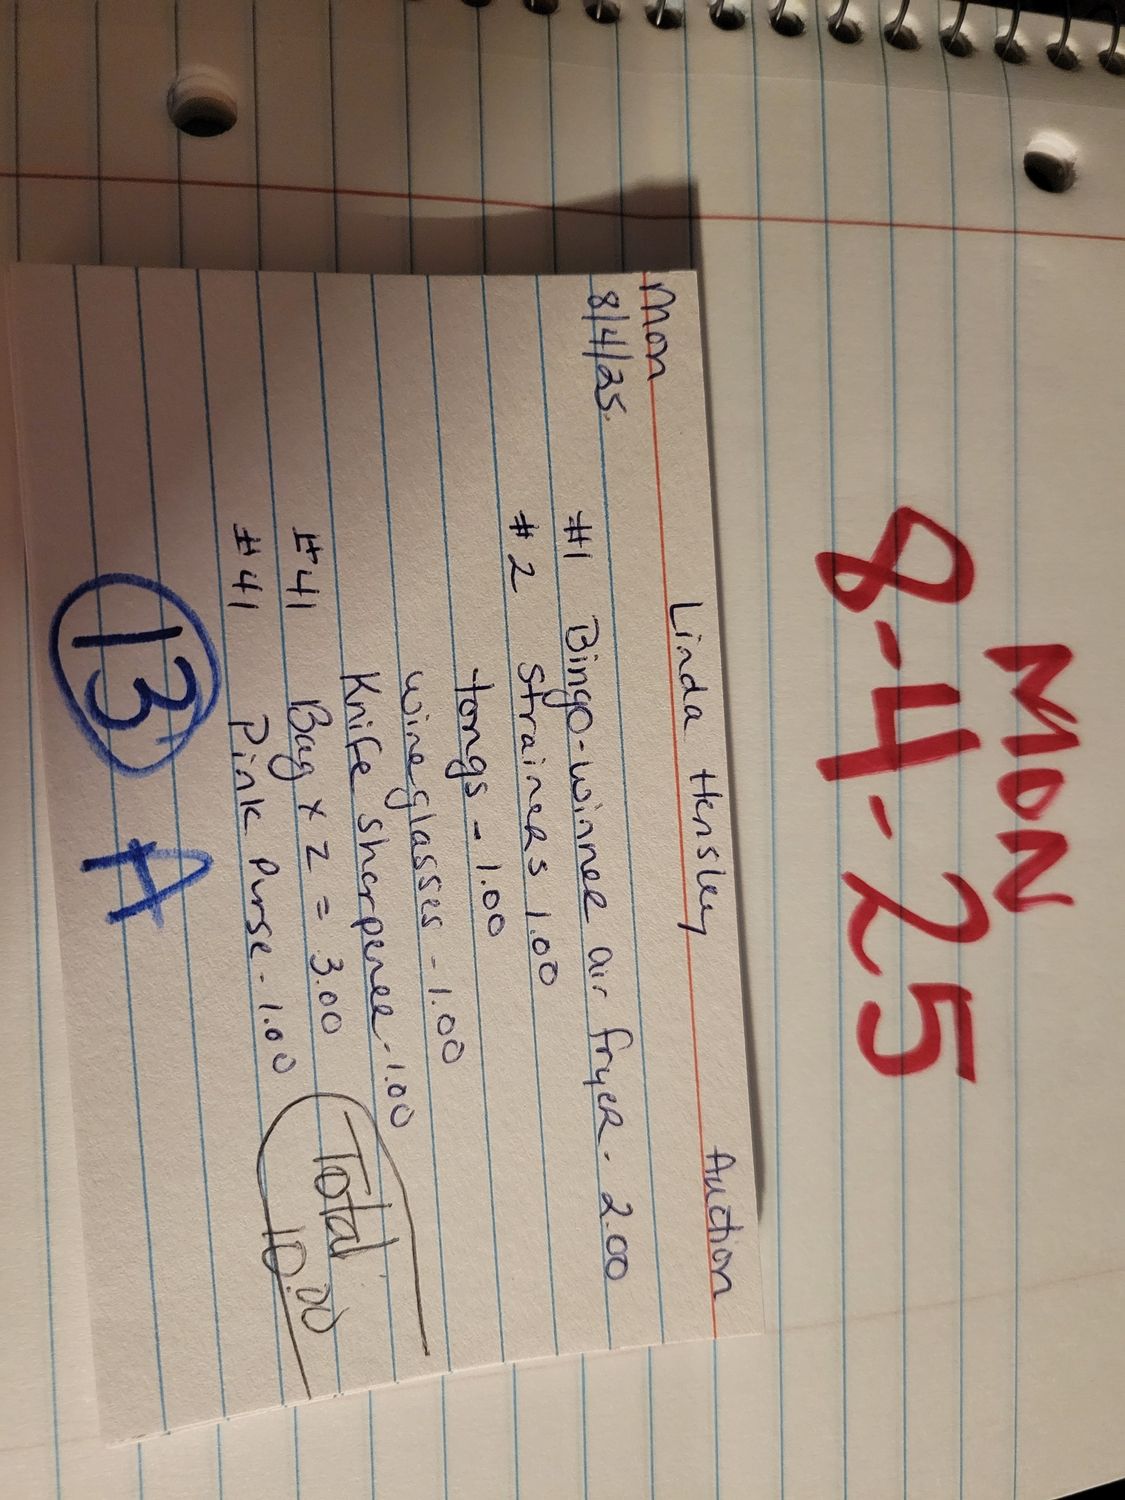 MON
8-4-25
Mon Linda Hensley Auction
8/4/25
#1 Bingo-winner air fryer. 2.00
#2 strainers 1.00
tongs - 1.00
wine glasses - 1.00
Knife sharpener - 1.00
#41 Bag x 2 = 3.00
#41 Pink Purse - 1.00
Total
10.00
13 A